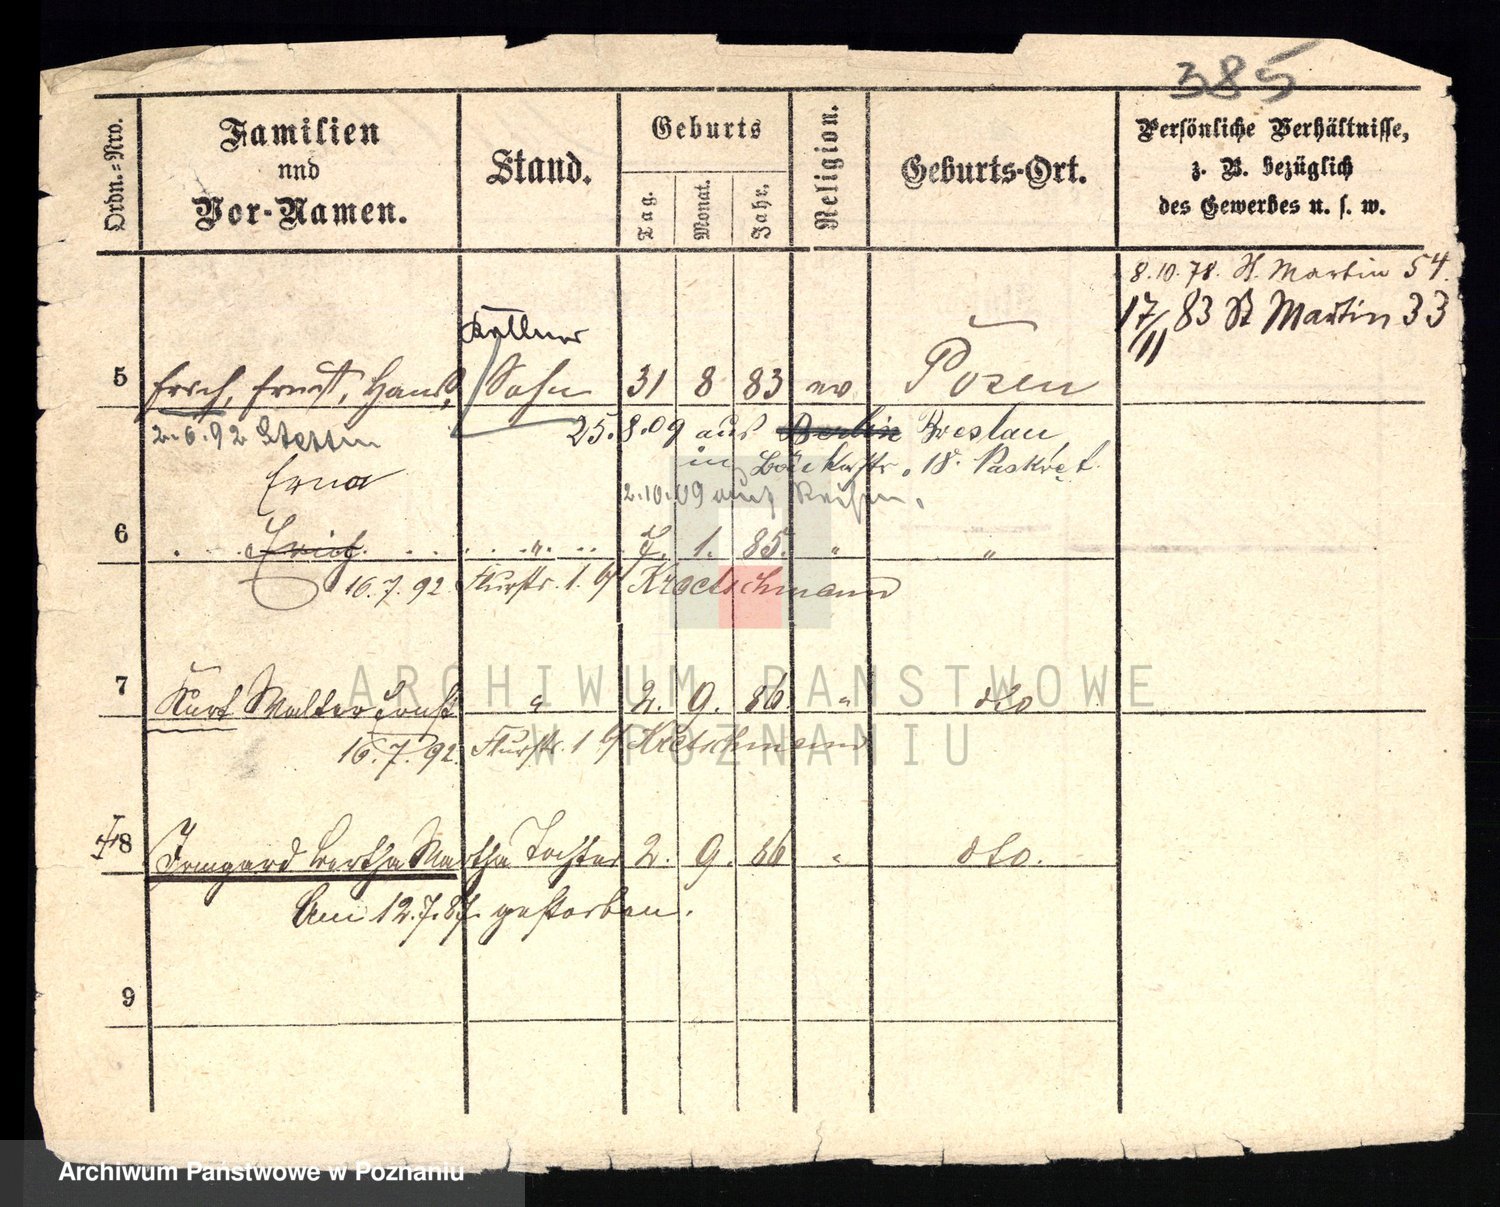 385
Ordn.=Nro.
Familien
und
Vor-Namen.
Stand.
Geburts
Tag.
Monat.
Jahr.
Religion.
Geburts-Ort.
Persönliche Verhältnisse,
z. B. bezüglich
des Gewerbes u. s. w.
8.10.78. St. Martin 54.
17/11 83 St Martin 33
Kellner
5 Erich, Ernst, Hans, Sohn 31 8 83 ev. Posen
2.6.92 Stettin
25.8.09 aus Berlin Breslau
in 18. Paskret.
Erna
2.10.09 auf Reisen.
6 Erich " 7. 1. 85. " "
16.7.92 Flurstr. 1. b/ Kretschmann
7 Kurt Walter Ernst " 2. 9. 86. " dto
16.7.92. Flurstr. 1 b/ Kretschmann
8 Irmgard Bertha Martha Tochter 2. 9. 86 " dto.
Am 12.7.87. gestorben.
9
ARCHIWUM PAŃSTWOWE
W POZNANIU
Archiwum Państwowe w Poznaniu